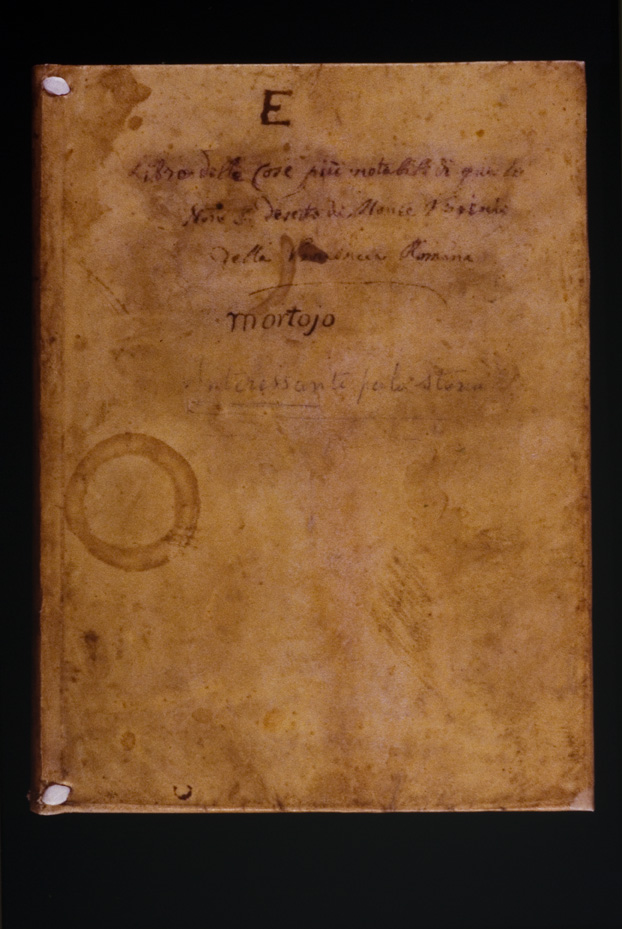 E
Libro delle Cose più notabili di questo
Nro S. Deserto di Monte Virginio
della Provincia Romana
mortojo
Interessante storia